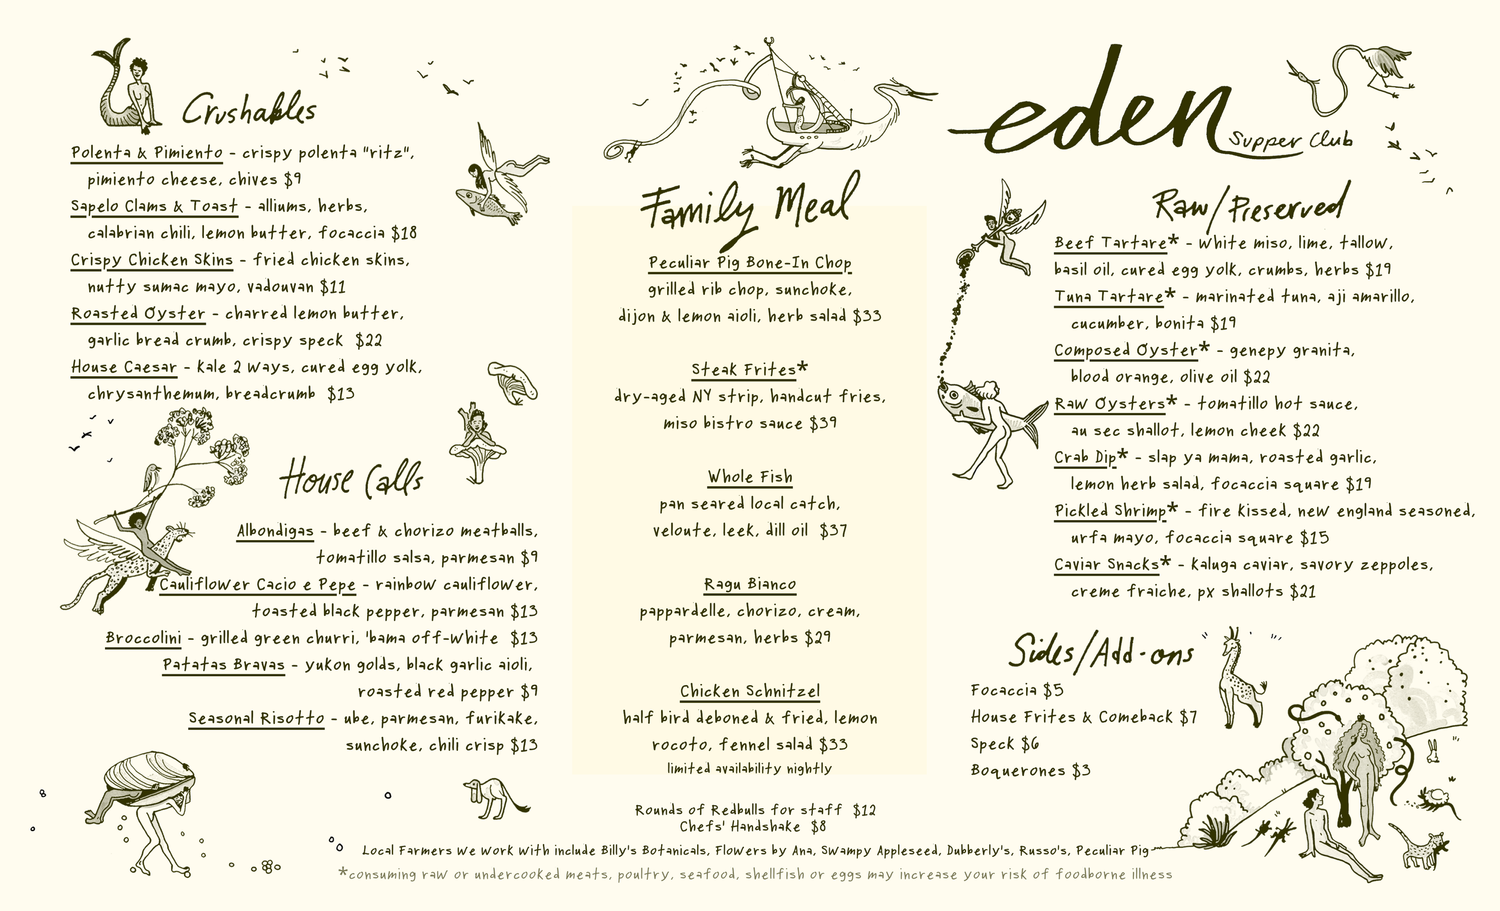 Crushables
Polenta & Pimiento - crispy polenta "ritz",
pimiento cheese, chives $9
Sapelo Clams & Toast - alliums, herbs,
calabrian chili, lemon butter, focaccia $18
Crispy Chicken Skins - fried chicken skins,
nutty sumac mayo, vadouvan $11
Roasted Oyster - charred lemon butter,
garlic bread crumb, crispy speck $22
House Caesar - kale 2 ways, cured egg yolk,
chrysanthemum, breadcrumb $13
House Calls
Albondigas - beef & chorizo meatballs,
tomatillo salsa, parmesan $9
Cauliflower Cacio e Pepe - rainbow cauliflower,
toasted black pepper, parmesan $13
Broccolini - grilled green churri, 'bama off-white $13
Patatas Bravas - yukon golds, black garlic aioli,
roasted red pepper $9
Seasonal Risotto - ube, parmesan, furikake,
sunchoke, chili crisp $13
Family Meal
Peculiar Pig Bone-In Chop
grilled rib chop, sunchoke,
dijon & lemon aioli, herb salad $33
Steak Frites*
dry-aged NY strip, handcut fries,
miso bistro sauce $39
Whole Fish
pan seared local catch,
veloute, leek, dill oil $37
Ragu Bianco
pappardelle, chorizo, cream,
parmesan, herbs $29
Chicken Schnitzel
half bird deboned & fried, lemon
rocoto, fennel salad $33
limited availability nightly
Rounds of Redbulls for staff $12
Chefs' Handshake $8
eden
Supper Club
Raw/Preserved
Beef Tartare* - white miso, lime, tallow,
basil oil, cured egg yolk, crumbs, herbs $19
Tuna Tartare* - marinated tuna, aji amarillo,
cucumber, bonita $19
Composed Oyster* - genepy granita,
blood orange, olive oil $22
Raw Oysters* - tomatillo hot sauce,
au sec shallot, lemon cheek $22
Crab Dip* - slap ya mama, roasted garlic,
lemon herb salad, focaccia square $19
Pickled Shrimp* - fire kissed, new england seasoned,
urfa mayo, focaccia square $15
Caviar Snacks* - kaluga caviar, savory zeppoles,
creme fraiche, px shallots $21
Sides/Add-ons
Focaccia $5
House Frites & Comeback $7
Speck $6
Boquerones $3
Local Farmers We Work With include Billy's Botanicals, Flowers by Ana, Swampy Appleseed, Dubberly's, Russo's, Peculiar Pig
*consuming raw or undercooked meats, poultry, seafood, shellfish or eggs may increase your risk of foodborne illness